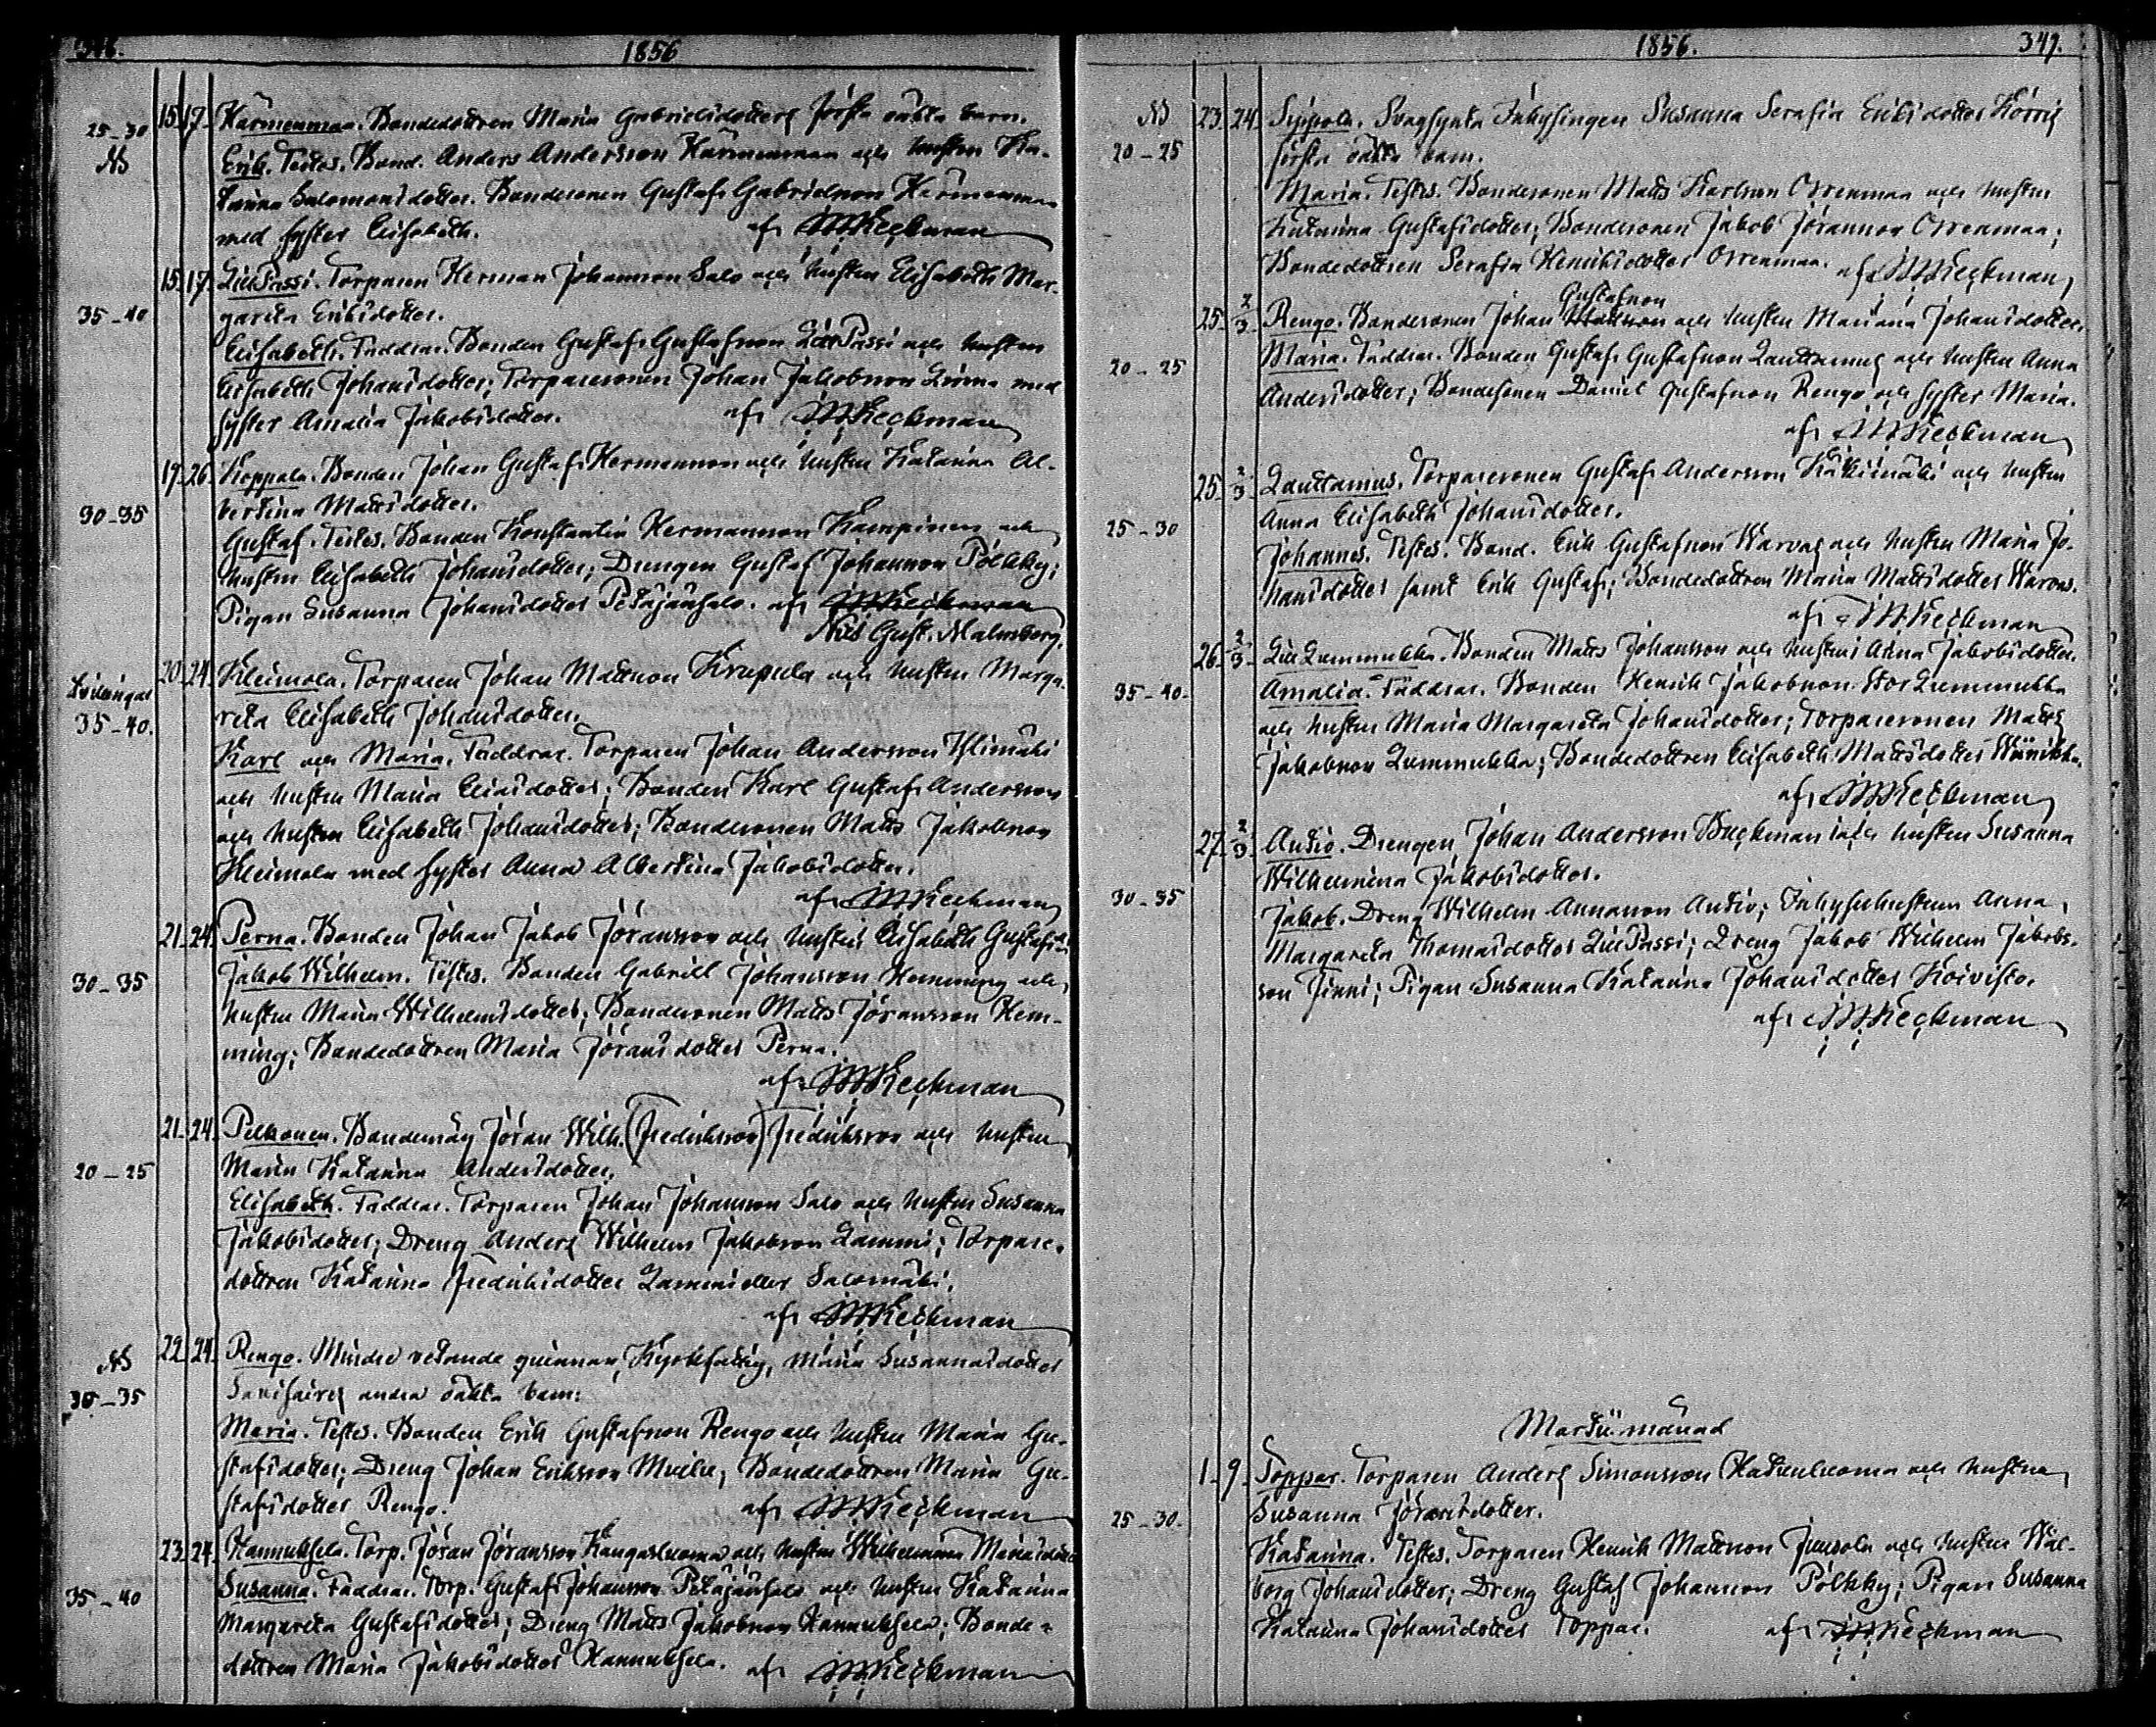 346.
1856
25-30 15. 17. Kärmenmaa. Bondedottren Maria Gabrielsdotters första oäkta barn.
NS Erik. Testes. Bond. Anders Andersson Kärmenmaa och hustru Ka-
tarina Salomonsdotter. Bondesonen Gustaf Gabrielsson Kärmenmaa
med syster Elisabeth. af MKeckman
15. 17. LillPassi. Torparen Herman Johansson Salo och hustru Elisabeth Mar-
35-40 gareta Eriksdotter.
Elisabeth. Faddrar. Bonden Gustaf Gustafsson LillPassi och hustru
Elisabeth Johansdotter; Torparesonen Johan Jakobsson Luoma med
syster Amalia Jakobsdotter. af MKeckman
17. 26. Koppala. Bonden Johan Gustaf Hermansson och hustru Katarina Al-
30-35 bertina Mattsdotter.
Gustaf. Testes. Bonden Konstantin Hermansson Kampinen och
hustru Elisabeth Johansdotter; Drengen Gustaf Johansson Pölkky;
Pigan Susanna Johansdotter Petäjäsalo. af MKeckman
Nils Gust. Malmberg.
Tvillingar 20. 24. Kleimola. Torparen Johan Mattsson Krupula och hustru Marga-
35-40. reta Elisabeth Johansdotter.
Karl och Maria. Faddrar. Torparen Johan Andersson Ylimäki
och hustru Maria Eliasdotter; Bonden Karl Gustaf Andersson
och hustru Elisabeth Johansdotter; Bondesonen Matts Jakobsson
Kleimola med syster Anna Albertina Jakobsdotter.
af MKeckman
21. 24. Perna. Bonden Johan Jakob Jöransson och hustru Elisabeth Gustafsd.
30-35 Jakob Wilhelm. Testes. Bonden Gabriel Johansson Hemming och
hustru Maria Wilhelmsdotter; Bondesonen Matts Jöransson Hem-
ming; Bondedottren Maria Jöransdotter Perna.
af MKeckman
21. 24. Pelkonen. Bondemåg Jöran Wilh. (Fredriksson) Fredriksson och hustru
20-25 Maria Katarina Andersdotter.
Elisabeth. Faddrar. Torparen Johan Johansson Salo och hustru Susanna
Jakobsdotter; Dreng Anders Wilhelm Jakobsson Lammi; Torpare-
dottren Katarina Fredriksdotter Lammi eller Salomäki.
af MKeckman
NS 22. 24. Rengo. Mindre vetande qvinnan, Kyrkfattig, Maria Susannasdotter
30-35 andra oäkta barn:
Maria. Testes. Bonden Erik Gustafsson Rengo och hustru Maria Gu-
stafsdotter; Dreng Johan Eriksson; Bondedottren Maria Gu-
stafsdotter Rengo. af MKeckman
23. 24. Hannuksela. Torp. Jöran Jöransson Kangasluoma och hustru Wilhelmina Mariasdotter
35-40 Susanna. Faddrar. Torp. Gustaf Johansson Petäjäsalo och hustru Katarina
Margareta Gustafsdotter; Dreng Matts Jakobsson Hannuksela; Bonde-
dottren Maria Jakobsdotter Hannuksela. af MKeckman
1856. 347.
NS 23. 24. Sippola. Svagsynta Inhysingen Susanna Serafia Eriksdotter
20-25 första oäkta barn.
Maria. Testes. Bondesonen Matts Karlsson Orrenmaa och hustru
Katarina Gustafsdotter; Bondesonen Jakob Jöransson Orrenmaa;
Bondedottren Serafia Henriksdotter Orrenmaa. af MKeckman
Gustafsson
25. 2/3 Rengo. Bondesonen Johan Mattsson och hustru Mariana Johansdotter.
20-25 Maria. Faddrar. Bonden Gustaf Gustafsson Lauttamus och hustru Anna
Andersdotter; Bondesonen Daniel Gustafsson Rengo och syster Maria.
af MKeckman
25. 2/3 Lauttamus. Torparesonen Gustaf Andersson Kätkimäki och hustru
25-30 Anna Elisabeth Johansdotter.
Johannes. Testes. Bond. Erik Gustafsson Warvas och hustru Maria Jo-
hansdotter samt Erik Gustaf; Bondedottren Maria Mattsdotter Warvas.
af MKeckman
26. 2/3 Lill Lummukka. Bonden Matts Johansson och hustru Anna Jakobsdotter.
35-40. Amalia. Faddrar. Bonden Henrik Jakobsson Stor Lummukka
och hustru Maria Margareta Johansdotter; Torparesonen Matts
Jakobsson Lummukka; Bondedottren Elisabeth Mattsdotter
af MKeckman
27. 2/3 Autio. Drengen Johan Andersson Buckman och hustru Susanna
30-35 Wilhelmina Jakobsdotter.
Jakob. Dreng Wilhelm Annasson Autio; Inhyseshustrun Anna
Margareta Thomasdotter LillPassi; Dreng Jakob Wilhelm Jakobs-
son Finni; Pigan Susanna Katarina Johansdotter Koivisto.
af MKeckman
Martii månad
1. 9. Toppar. Torparen Anders Simonsson Hatunluoma och hustru
25-30. Susanna Jöransdotter.
Katarina. Testes. Torparen Henrik Mattsson Juusola och hustru Wal-
borg Johansdotter; Dreng Gustaf Johansson Pölkky; Pigan Susanna
Katarina Johansdotter Toppar. af MKeckman